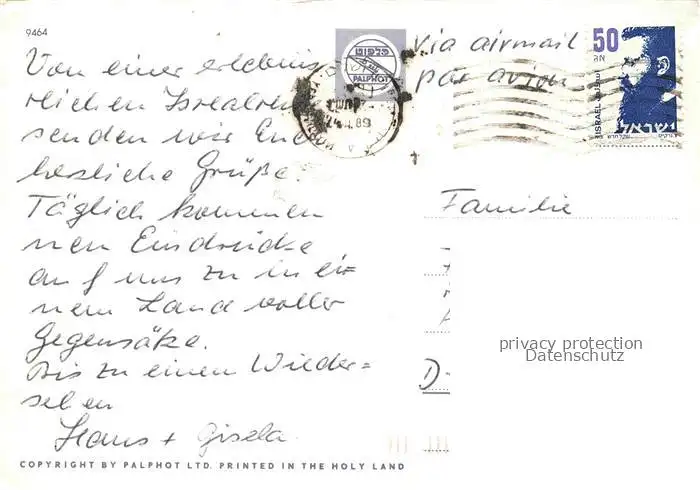 9464
Von einer erlebnis
reichen Israelreise
senden wir Euch
herzliche Grüße.
Täglich kommen
neue Eindrücke
auf uns zu in ei=
nem Land voller
Gegensätze.
Bis zu einem Wieder=
sehen
Hans + Gisela
COPYRIGHT BY PALPHOT LTD. PRINTED IN THE HOLY LAND
פלפוט
PALPHOT
via airmail
par avion
50
ISRAEL
ישראל
Familie
privacy protection
Datenschutz
D-